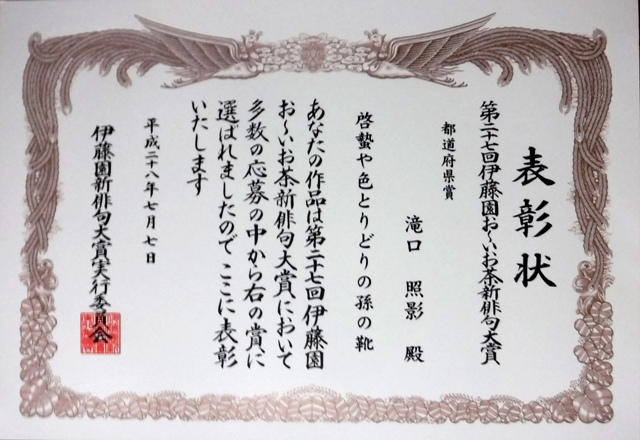 表彰状
第二十七回伊藤園お〜いお茶新俳句大賞
都道府県賞
滝口 照影 殿
啓蟄や色とりどりの孫の靴
あなたの作品は第二十七回伊藤園
お〜いお茶新俳句大賞において
多数の応募の中から右の賞に
選ばれましたので ここに表彰
いたします
平成二十八年七月七日
伊藤園新俳句大賞実行委員会